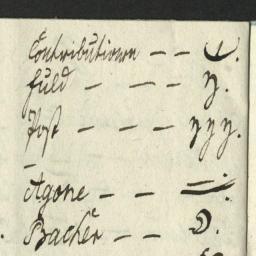 Contributionen — — 
fuld — — — y.
Post — — — y y y.
Agone — —
Bacher — — D.